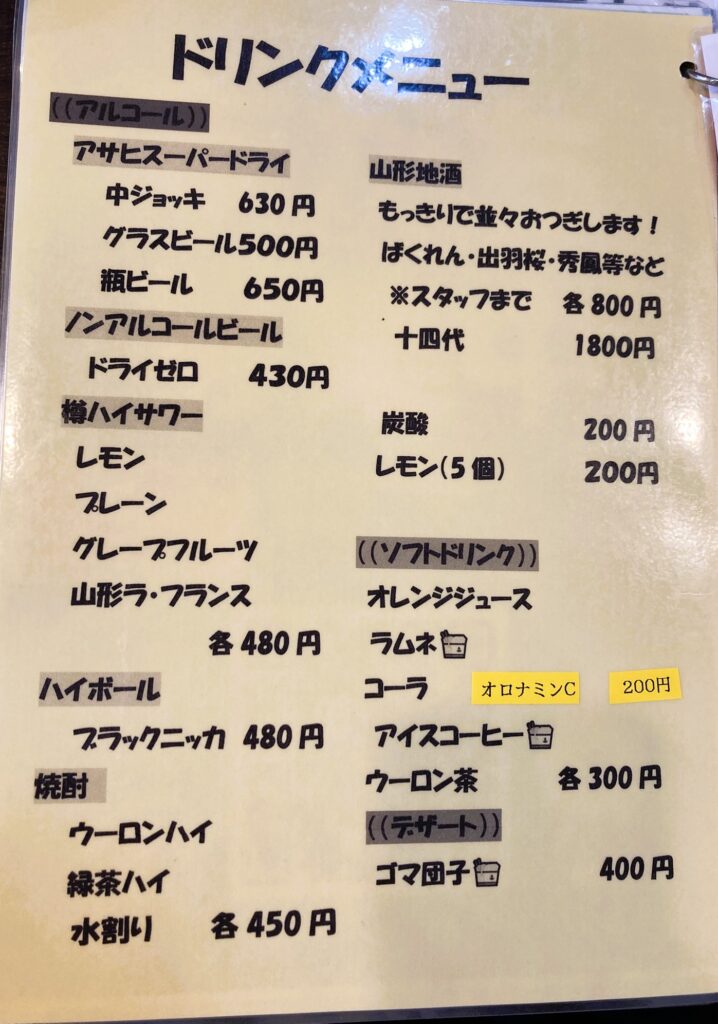 ドリンクメニュー
((アルコール))
アサヒスーパードライ
中ジョッキ 630円
グラスビール500円
瓶ビール 650円
ノンアルコールビール
ドライゼロ 430円
樽ハイサワー
レモン
プレーン
グレープフルーツ
山形ラ・フランス
各480円
ハイボール
ブラックニッカ 480円
焼酎
ウーロンハイ
緑茶ハイ
水割り 各450円
山形地酒
もっきりで並々おつぎします！
ばくれん・出羽桜・秀鳳等など
※スタッフまで 各800円
十四代 1800円
炭酸 200円
レモン(5個) 200円
((ソフトドリンク))
オレンジジュース
ラムネ
コーラ オロナミンC 200円
アイスコーヒー
ウーロン茶 各300円
((デザート))
ゴマ団子 400円